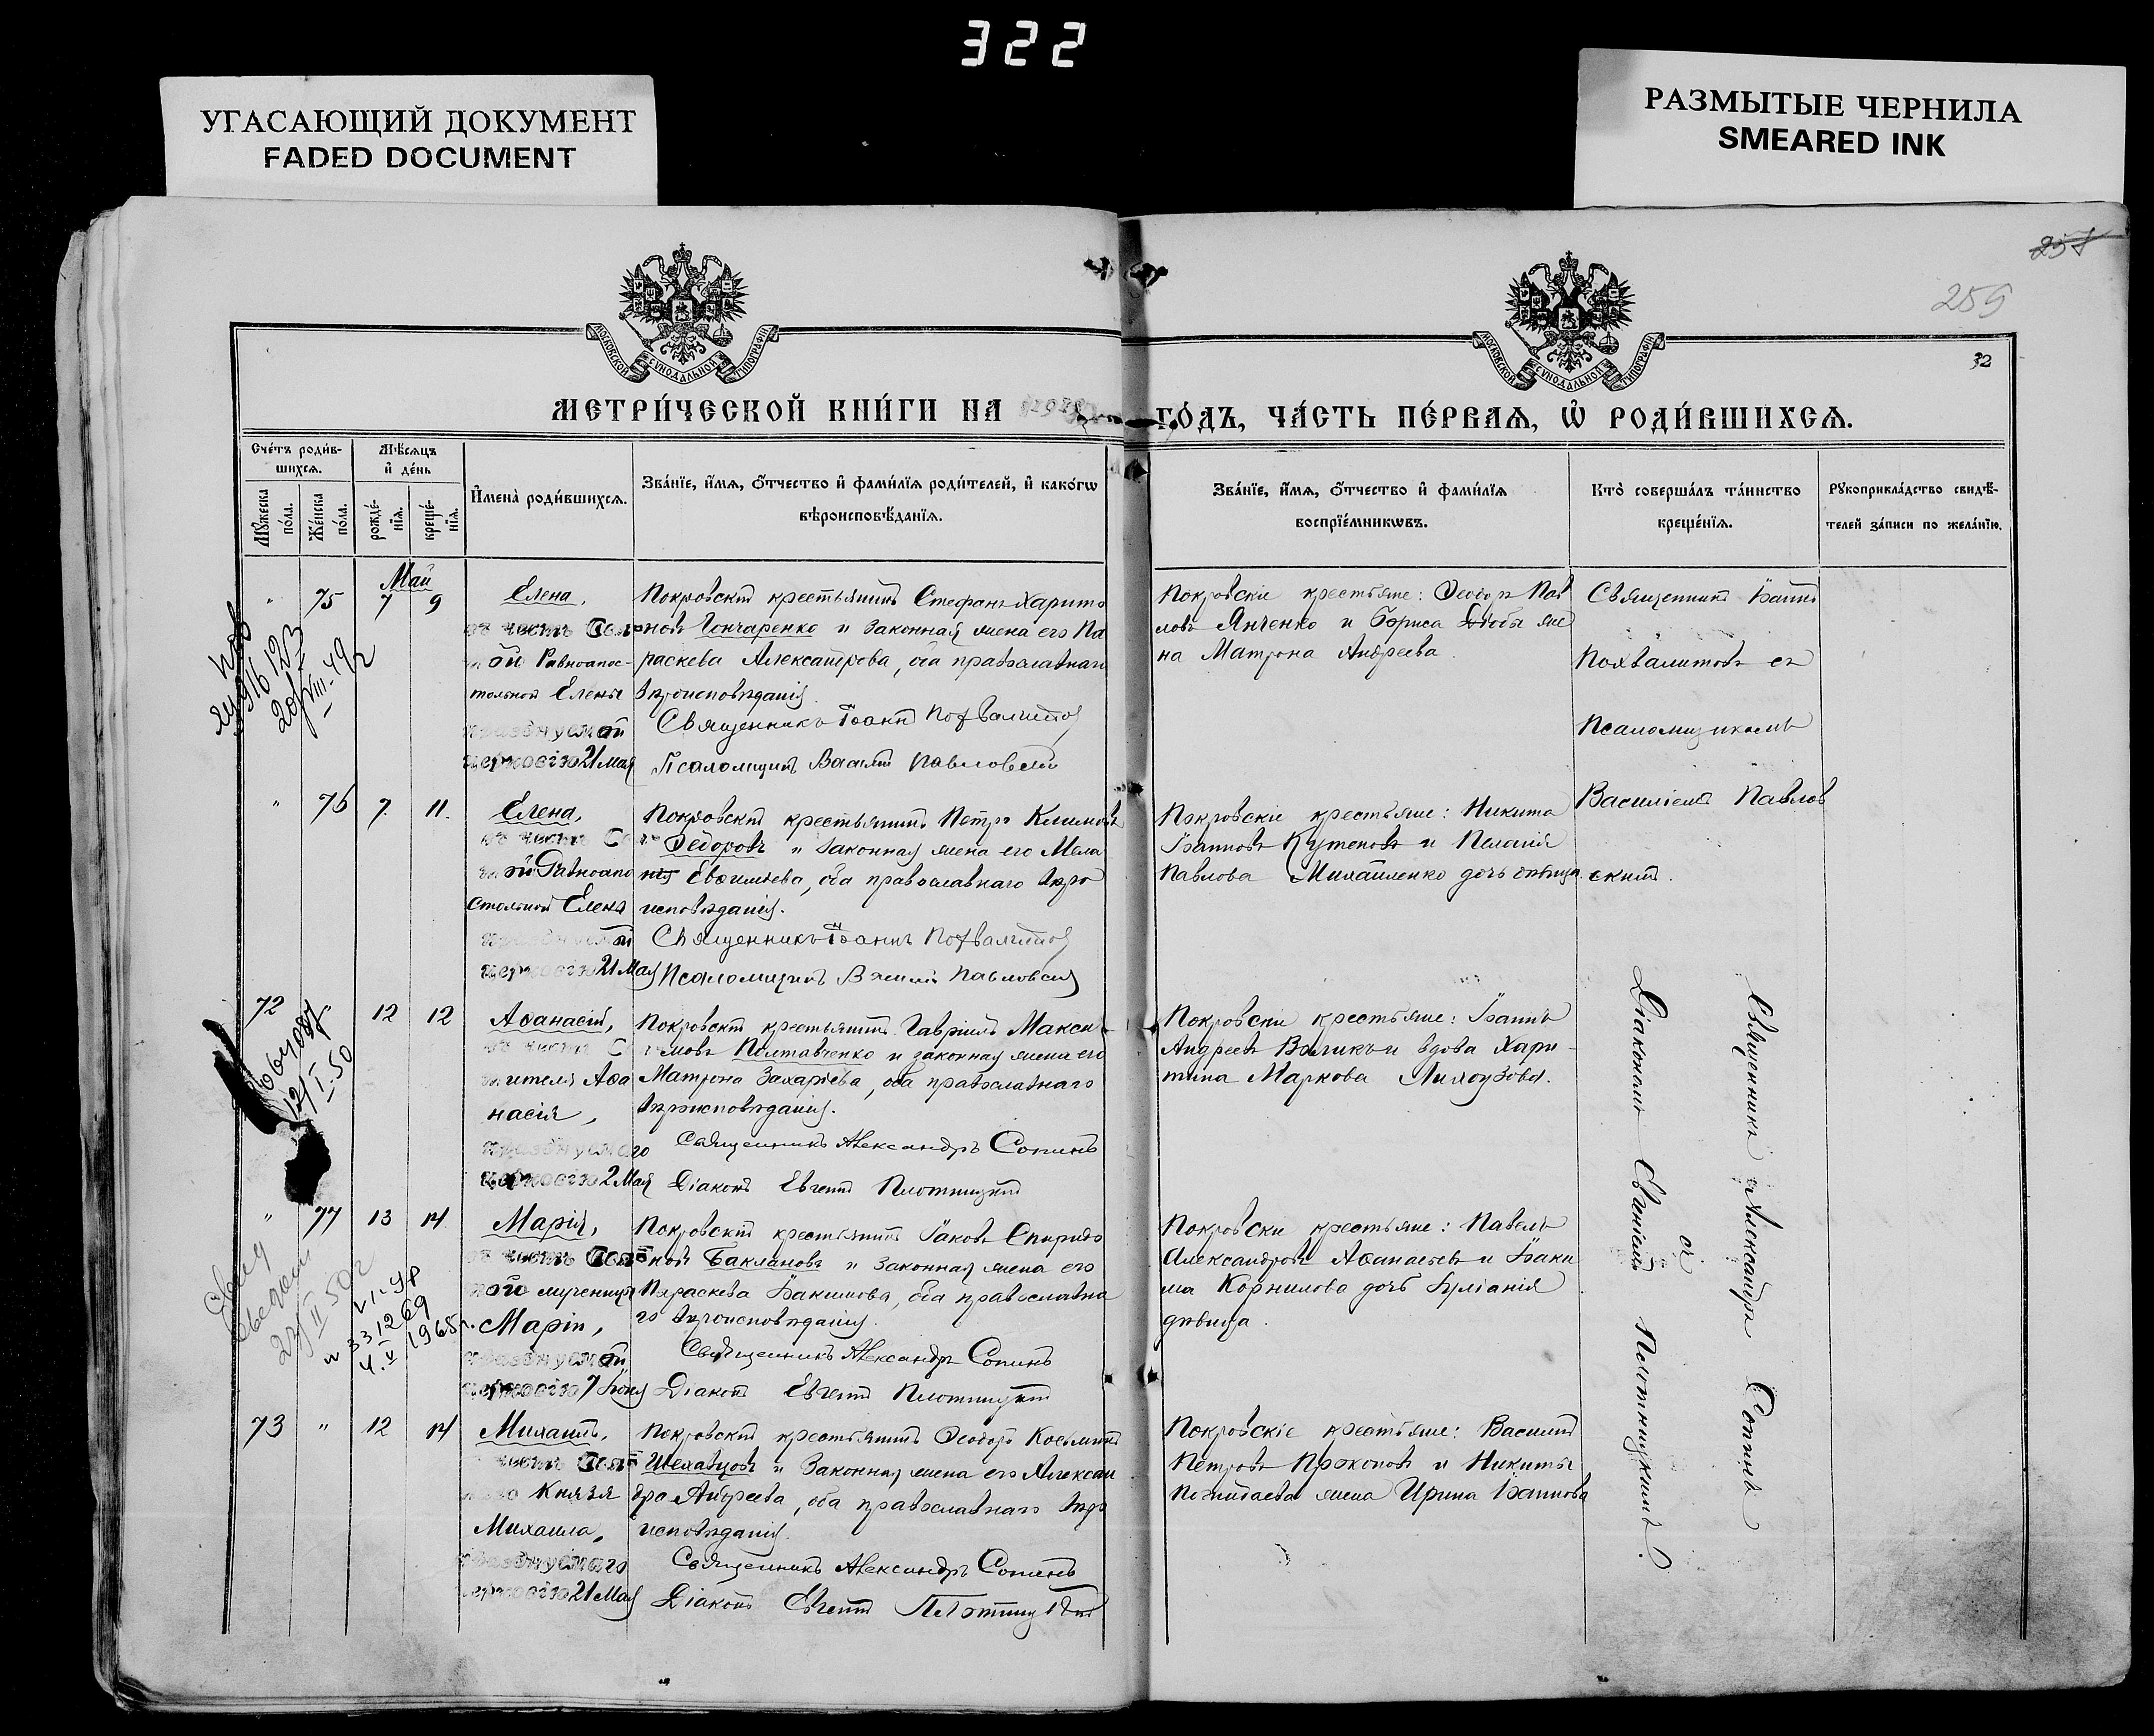 322
УГАСАЮЩИЙ ДОКУМЕНТ
FADED DOCUMENT
РАЗМЫТЫЕ ЧЕРНИЛА
SMEARED INK
257
259
32
МОСКОВСКОЙ СѴНОДАЛЬНОЙ ТИПОГРАФІИ
МОСКОВСКОЙ СѴНОДАЛЬНОЙ ТИПОГРАФІИ
МЕТРИ́ЧЕСКОЙ КНИ́ГИ НА
ГО́ДЪ, ЧА́СТЬ ПЕ́РВАЯ, Ѡ҆ РОДИ́ВШИХСЯ.
Сче́тъ роди́в-
шихся.
Мѣ́сяцъ
и҆ де́нь
Мꙋ́жеска
по́ла.
Же́нска
по́ла.
рожде́-
нїя.
креще́-
нїя.
И҆мена̀ роди́вшихся.
Зва́нїе, и҆́мя, ѻ҆́тчество и҆ фами́лїя роди́телей, и҆ како́гѡ
вѣроисповѣ́данїя.
Зва́нїе, и҆́мя, ѻ҆́тчество и҆ фами́лїя
воспрїе́мникѡвъ.
Кто̀ соверша́лъ та́инство
креще́нїя.
Рꙋкоприкла́дство свидѣ́-
телей за́писи по жела́нїю.
Май
" 75 7 9
Елена,
въ честь Свят
ой Равноапос-
тольной Елены
празднуемой
церковію 21 Мая
Покровскій крестьянинъ Стефанъ Харито
новъ Гончаренко и законная жена его Па
раскева Александрова, оба православнаго
вѣроисповѣданія.
Священникъ Іоаннъ Похвалитов
Псаломщикъ Василій Павловскій
Покровскіе крестьяне: Ѳеодоръ Пав
ловъ Янченко и Бориса же
на Матрона Андреева.
Священникъ Іоаннъ
Похвалитовъ съ
Псаломщикомъ
Василіемъ Павлов
скимъ.
" 76 7. 11.
Елена,
въ честь Св
ой Равноапо
стольной Елены
празднуемой
церковію 21 Мая
Покровскій крестьянинъ Петръ Климовъ
Ѳедоровъ и законная жена его Мела
нія Евѳимьева, оба православнаго вѣро
исповѣданія.
Священникъ Іоаннъ Похвалитов
Псаломщикъ Василій Павловскій
Покровскіе крестьяне: Никита
Іоанновъ Кутеповъ и Пелагія
Павлова Михайленко дочь дѣвица.
72 " 12 12
Аѳанасій,
въ честь С
ителя Аѳа
насія,
празднуемаго
церковію 2 Мая
Покровскій крестьянинъ Гавріилъ Макси-
мовъ Полтавченко и законная жена его
Матрона Захаріева, оба православнаго
вѣроисповѣданія.
Священникъ Александръ Сопинъ
Діаконъ Евгеній Плотницкій
Покровскіе крестьяне: Іоаннъ
Андреевъ Великъ и вдова Хари-
тина Маркова Лихоузова.
Священникъ Александръ Сопинъ
съ
Діакономъ Евгеніемъ Плотницкимъ.
" 77 13 14
Марія,
въ честь Свят
ой мученицы
Маріи,
празднуемой
церковію 7 Іюня
Покровскій крестьянинъ Іаковъ Спиридо
новъ Баклановъ и законная жена его
Параскева Іоакимова, оба православна
го вѣроисповѣданія.
Священникъ Александръ Сопинъ
Діаконъ Евгеній Плотницкій
Покровскіе крестьяне: Павелъ
Александровъ Аѳанасьевъ и Іоаки
ма Корнилова дочь Іуліанія
дѣвица.
73 " 12 14
Михаилъ,
честь Свят
Князя
Михаила,
празднуемаго
церковію 21 Мая
Покровскій крестьянинъ Ѳеодоръ Косьминъ
Шелавцовъ и законная жена его Алексан
дра Андреева, оба православнаго вѣро
исповѣданія.
Священникъ Александръ Сопинъ
Діаконъ Евгеній Плотницкій
Покровскіе крестьяне: Василій
Петровъ Прокоповъ и Никиты
жена Ирина Іоаннова
12/I-50
23/II 50 г
№ 331269
4.V 1968 г.